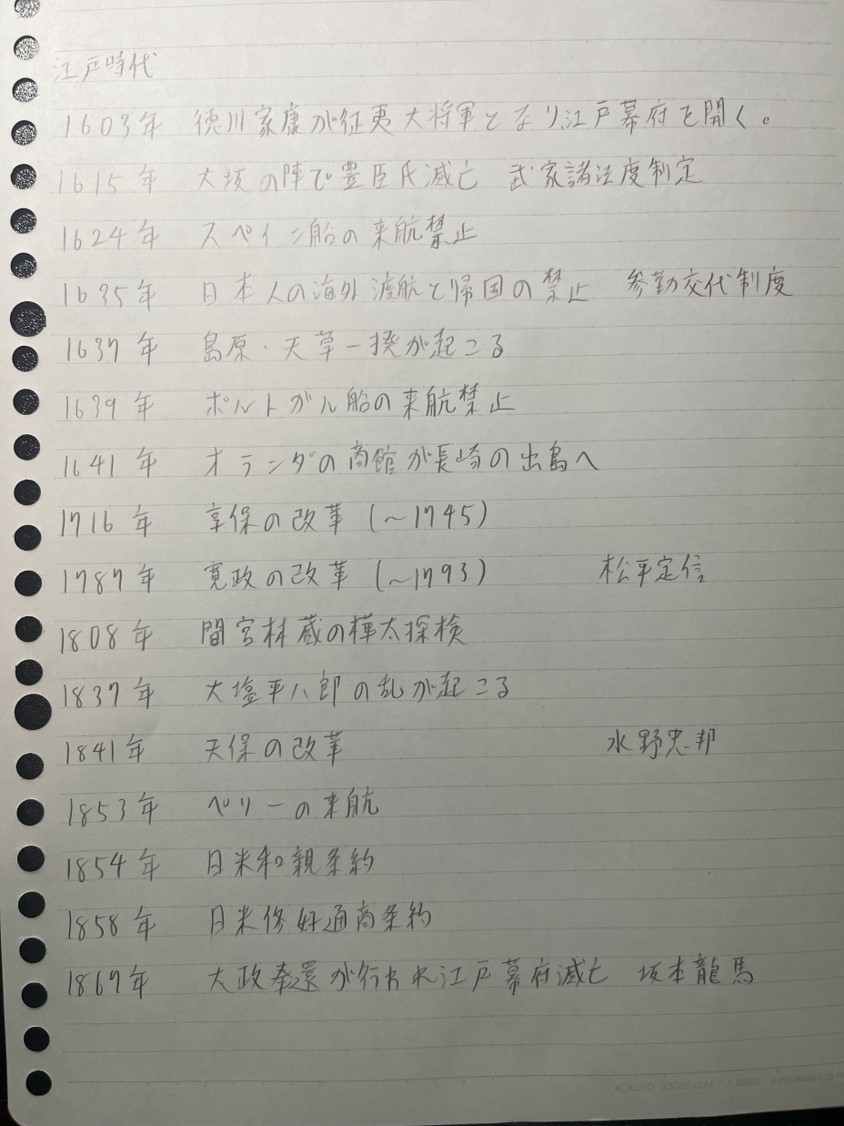 江戸時代
1603年 徳川家康が征夷大将軍となり、江戸幕府を開く。
1615年 大坂の陣で豊臣氏滅亡 武家諸法度制定
1624年 スペイン船の来航禁止
1635年 日本人の海外渡航と帰国の禁止 参勤交代制度
1637年 島原・天草一揆が起こる
1639年 ポルトガル船の来航禁止
1641年 オランダの商館が長崎の出島へ
1716年 享保の改革 (~1745)
1787年 寛政の改革 (~1793) 松平定信
1808年 間宮林蔵の樺太探検
1837年 大塩平八郎の乱が起こる
1841年 天保の改革 水野忠邦
1853年 ペリーの来航
1854年 日米和親条約
1858年 日米修好通商条約
1867年 大政奉還が行われ江戸幕府滅亡 坂本龍馬
KOKUYO LOOSE-LEAF